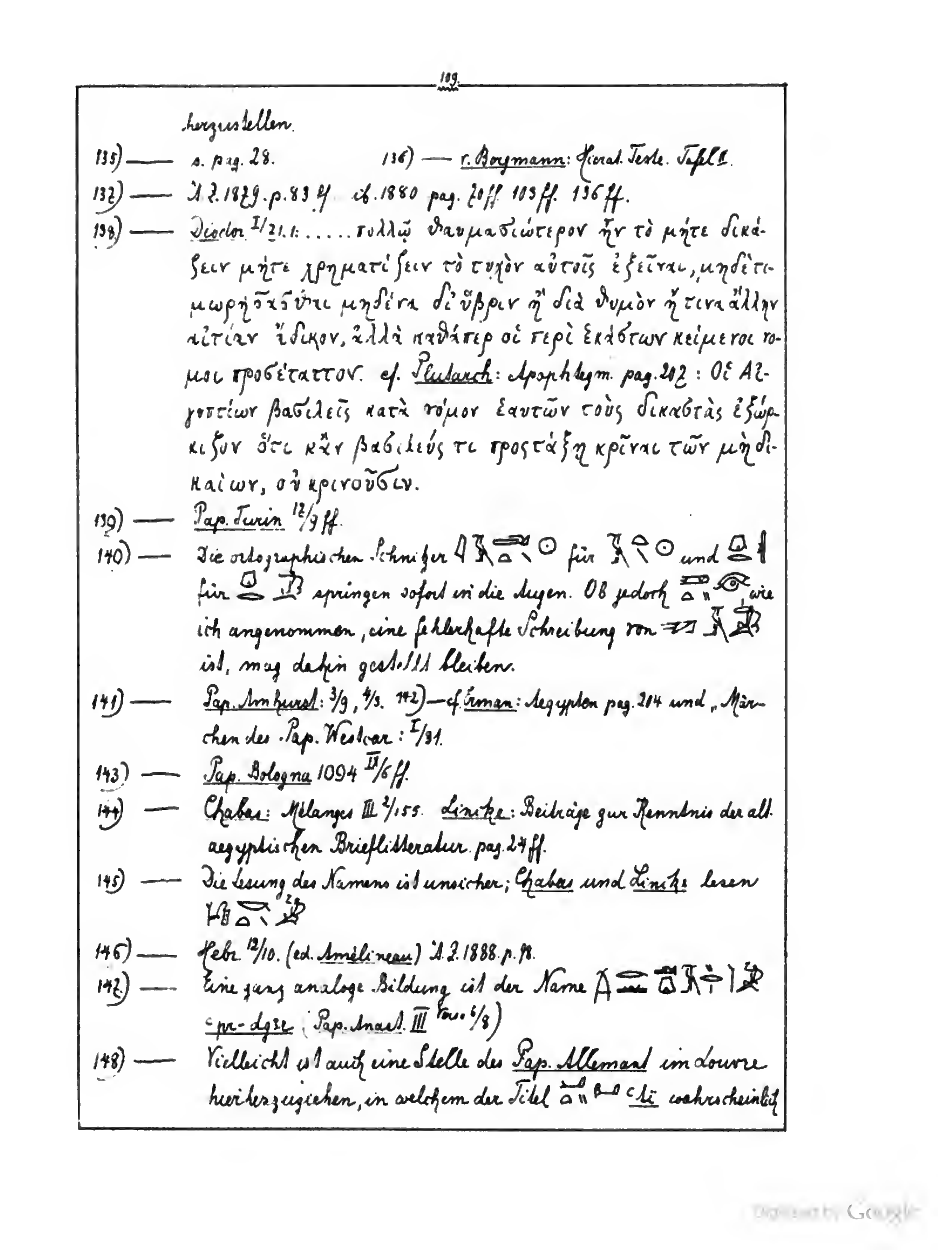 109.
herzustellen.
135) — s. pag. 28. 136) — v. Bergmann: Hierat. Texte. Tafel
137) — Ä.Z. 1879. p. 83 ff cf. 1880 pag. 70ff 103ff. 136ff.
138) — Diodor I/71.1: ..... πολλῷ θαυμασιώτερον ἦν τὸ μήτε δικά-
ζειν μήτε χρηματίζειν τὸ τυχὸν αὐτοῖς ἐξεῖναι, μηδὲ τι-
μωρήσασθαι μηδένα δι' ὕβριν ἢ διὰ θυμὸν ἤ τινα ἄλλην
αἰτίαν ἄδικον, ἀλλὰ καθάπερ οἱ περὶ ἑκάστων κείμενοι νό-
μοι προσέταττον. cf. Plutarch: Apophtegm. pag. 207 : Οἱ Αἰ-
γυπτίων βασιλεῖς κατὰ νόμον ἑαυτῶν τοὺς δικαστὰς ἐξώρ-
κιζον ὅτι κἂν βασιλεύς τι προστάξῃ κρῖναι τῶν μὴ δι-
καίων, οὐ κρινοῦσιν.
139) — Pap. Turin 12/9 ff.
140) — Die ortographischen Schnitzer für und
für springen sofort in die Augen. Ob jedoch , wie
ich angenommen, eine fehlerhafte Schreibung von
ist, mag dahin gestellt bleiben.
141) — Pap. Amhurst: 3/9, 4/3. 142) — cf. Erman: Aegypten pag. 204 und „Mär-
chen des Pap. Westcar: I/31.
143) — Pap. Bologna 1094 /6 ff.
144) — Chabas: Mélanges III 2/155. Lincke: Beiträge zur Kenntnis der alt-
aegyptischen Brieflitteratur. pag. 24 ff.
145) — Die Lesung des Namens ist unsicher; Chabas und Lincke lesen
146) — Hebr. 12/10. (ed. Amélineau) Ä.Z. 1888. p.
147.) — Eine ganz analoge Bildung ist der Name
(Pap. Anast. III Verso 6/8)
148) — Vielleicht ist auch eine Stelle des Pap. Allemant im Louvre
hierherzuziehen, in welchem der Titel wahrscheinlich
Digitized by Google